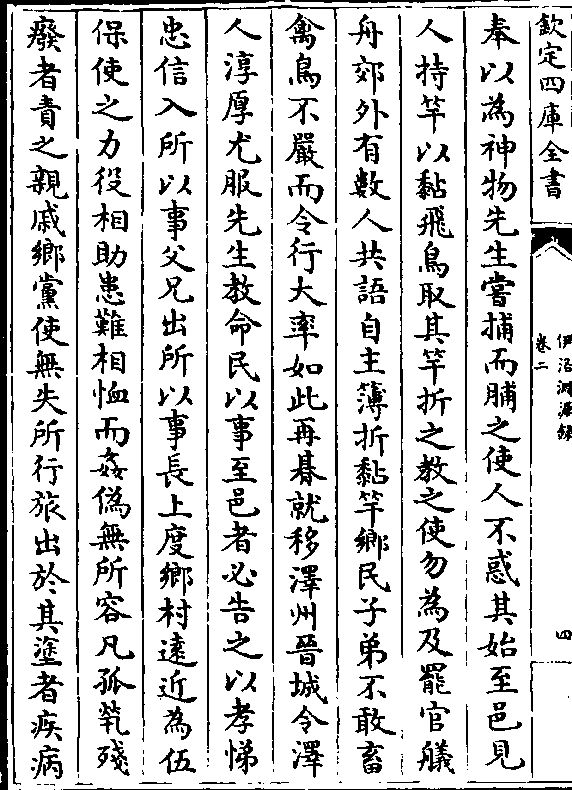 欽定四庫全書
伊洛淵源錄
卷二
四
奉以為神物先生嘗捕而脯之使人不惑其始至邑見
人持竿以黏飛鳥取其竿折之教之使勿為及罷官艤
舟郊外有數人共語自主簿折黏竿鄉民子弟不敢畜
禽鳥不嚴而令行大率如此再朞就移澤州晉城令澤
人淳厚尤服先生教命民以事至邑者必告之以孝悌
忠信入所以事父兄出所以事長上度鄉村遠近為伍
保使之力役相助患難相恤而姦偽無所容凡孤煢殘
癈者責之親戚鄉黨使無失所行旅出於其塗者疾病